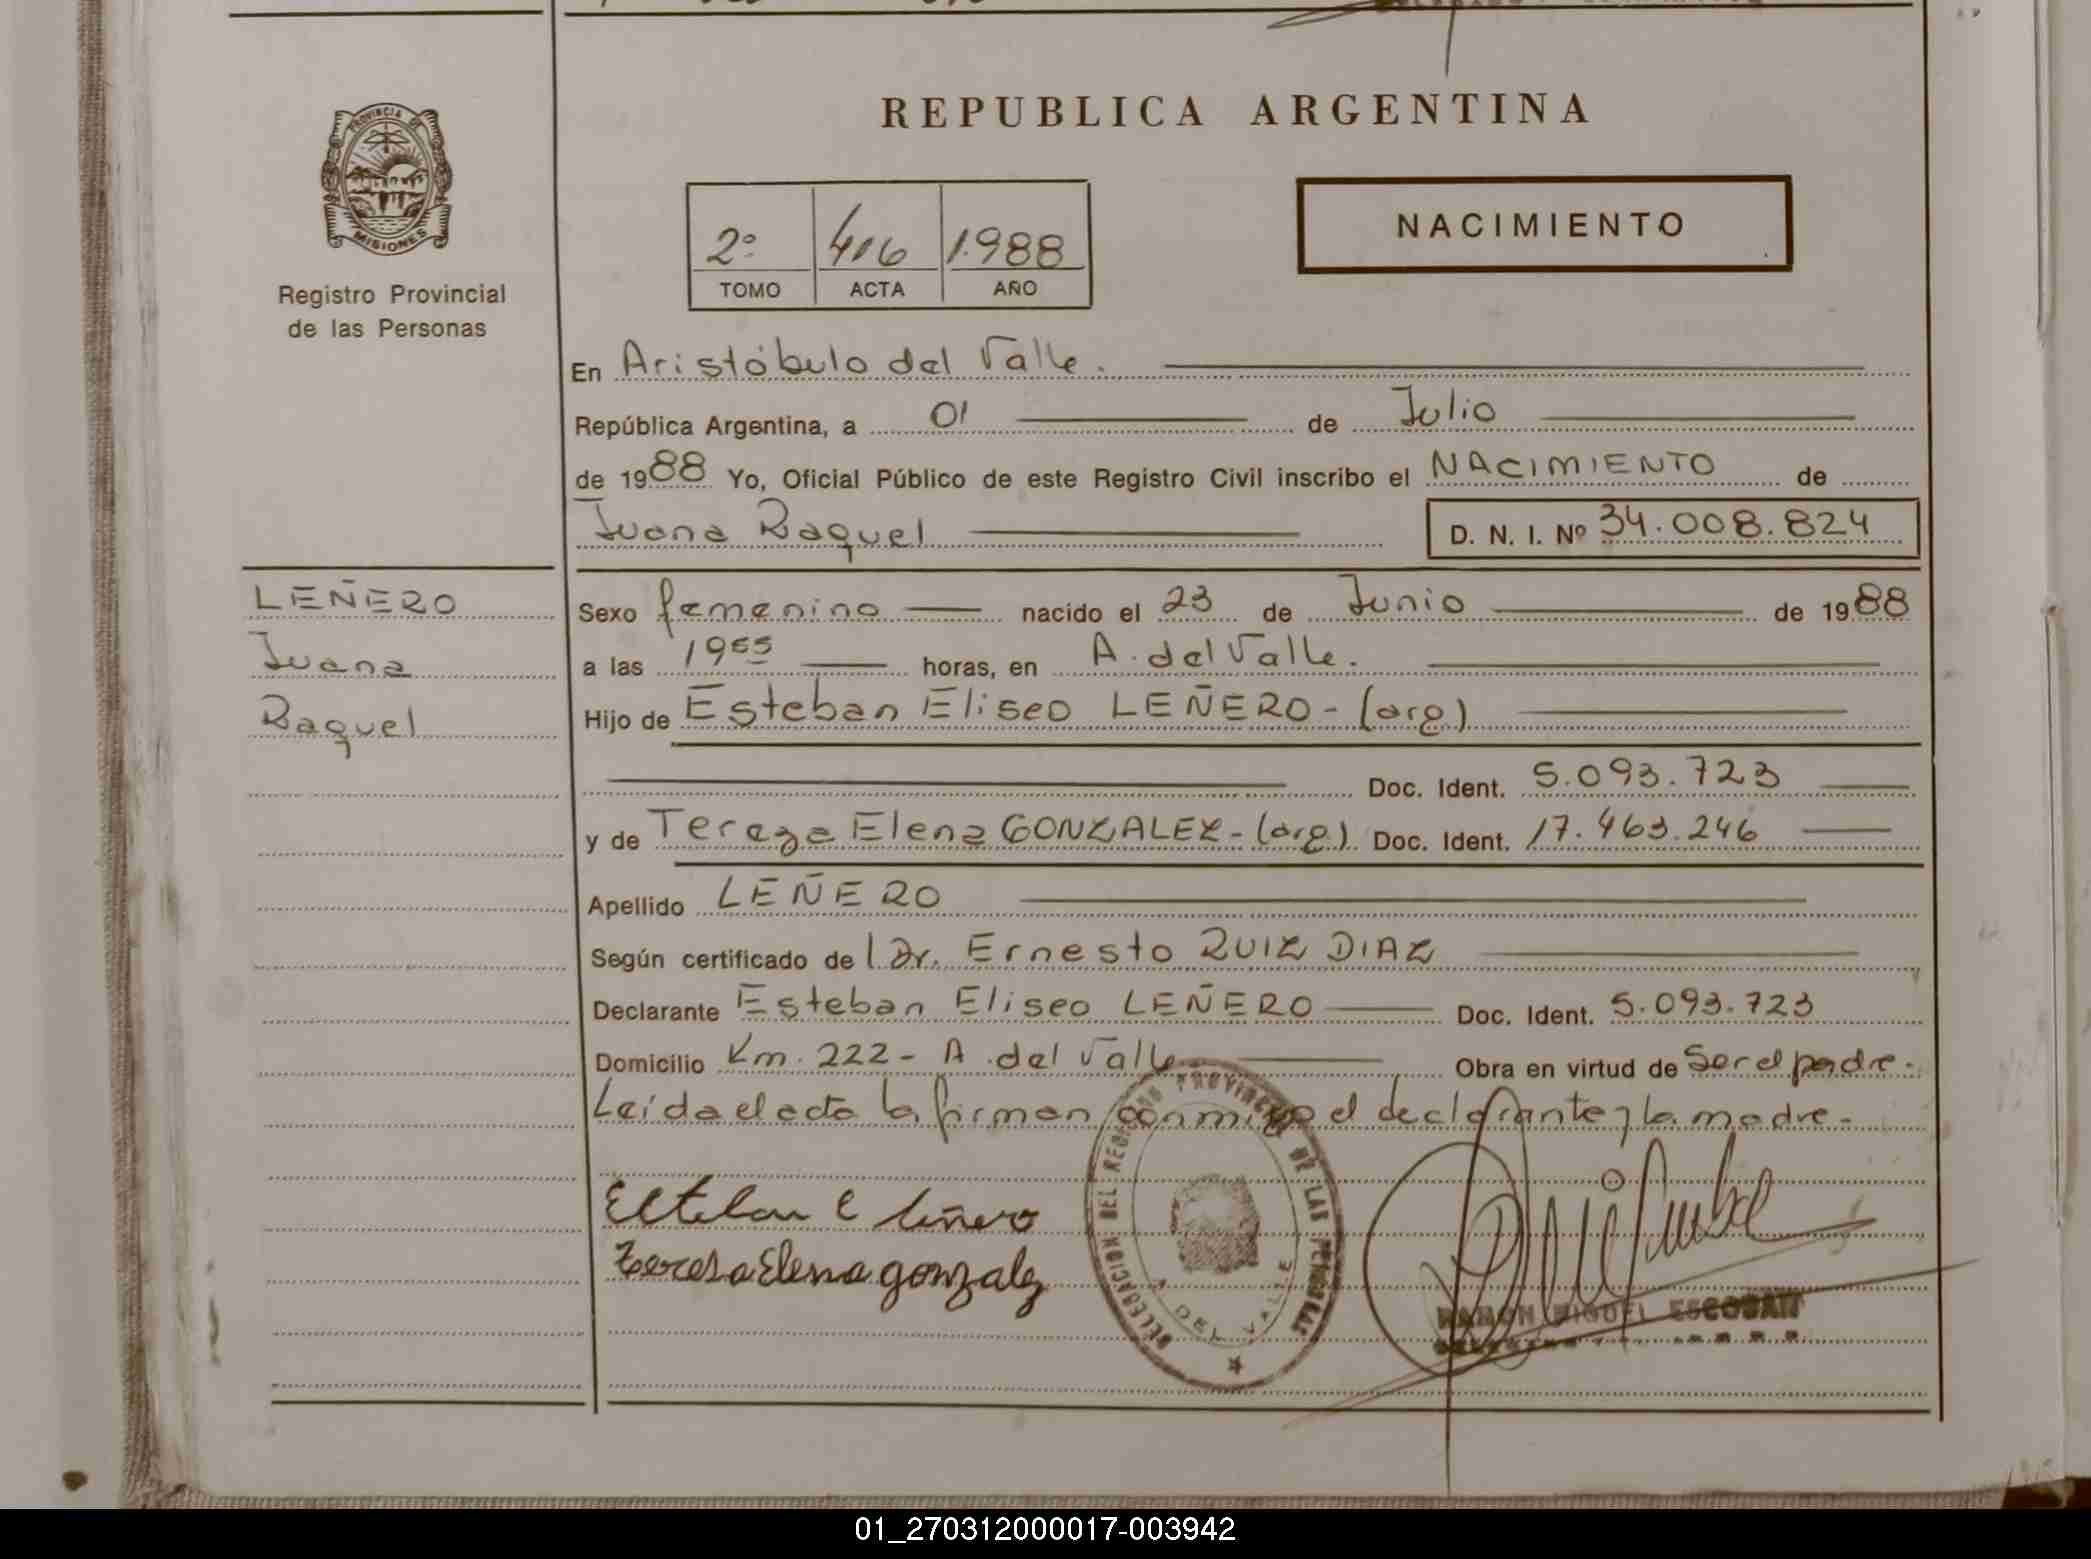 REPUBLICA ARGENTINA
PROVINCIA DE
MISIONES
Registro Provincial
de las Personas
2º 416 1.988
TOMO ACTA AÑO
NACIMIENTO
En Aristóbulo del Valle.
República Argentina, a 01 de Julio
de 1988 Yo, Oficial Público de este Registro Civil inscribo el NACIMIENTO de
Juana Raquel D. N. I. Nº 34.008.824
LEÑERO
Juana
Raquel
Sexo femenino nacido el 23 de Junio de 1988
a las 19 55 horas, en A. del Valle.
Hijo de Esteban Eliseo LEÑERO - (arg)
Doc. Ident. 5.093.723
y de Tereza Elena GONZALEZ - (arg) Doc. Ident. 17.463.246
Apellido LEÑERO
Según certificado de l Dr. Ernesto RUIZ DIAZ
Declarante Esteban Eliseo LEÑERO Doc. Ident. 5.093.723
Domicilio Km. 222 - A. del Valle Obra en virtud de Ser el padre.-
Leída el acta la firman conmigo el declarante y la madre.-
Esteban E Leñero
Teresa Elena gonzalez
DELEGACION DEL REGISTRO PROVINCIAL DE LAS PERSONAS
A. DEL VALLE
RAMON MIGUEL ESCOBAR
01_270312000017-003942